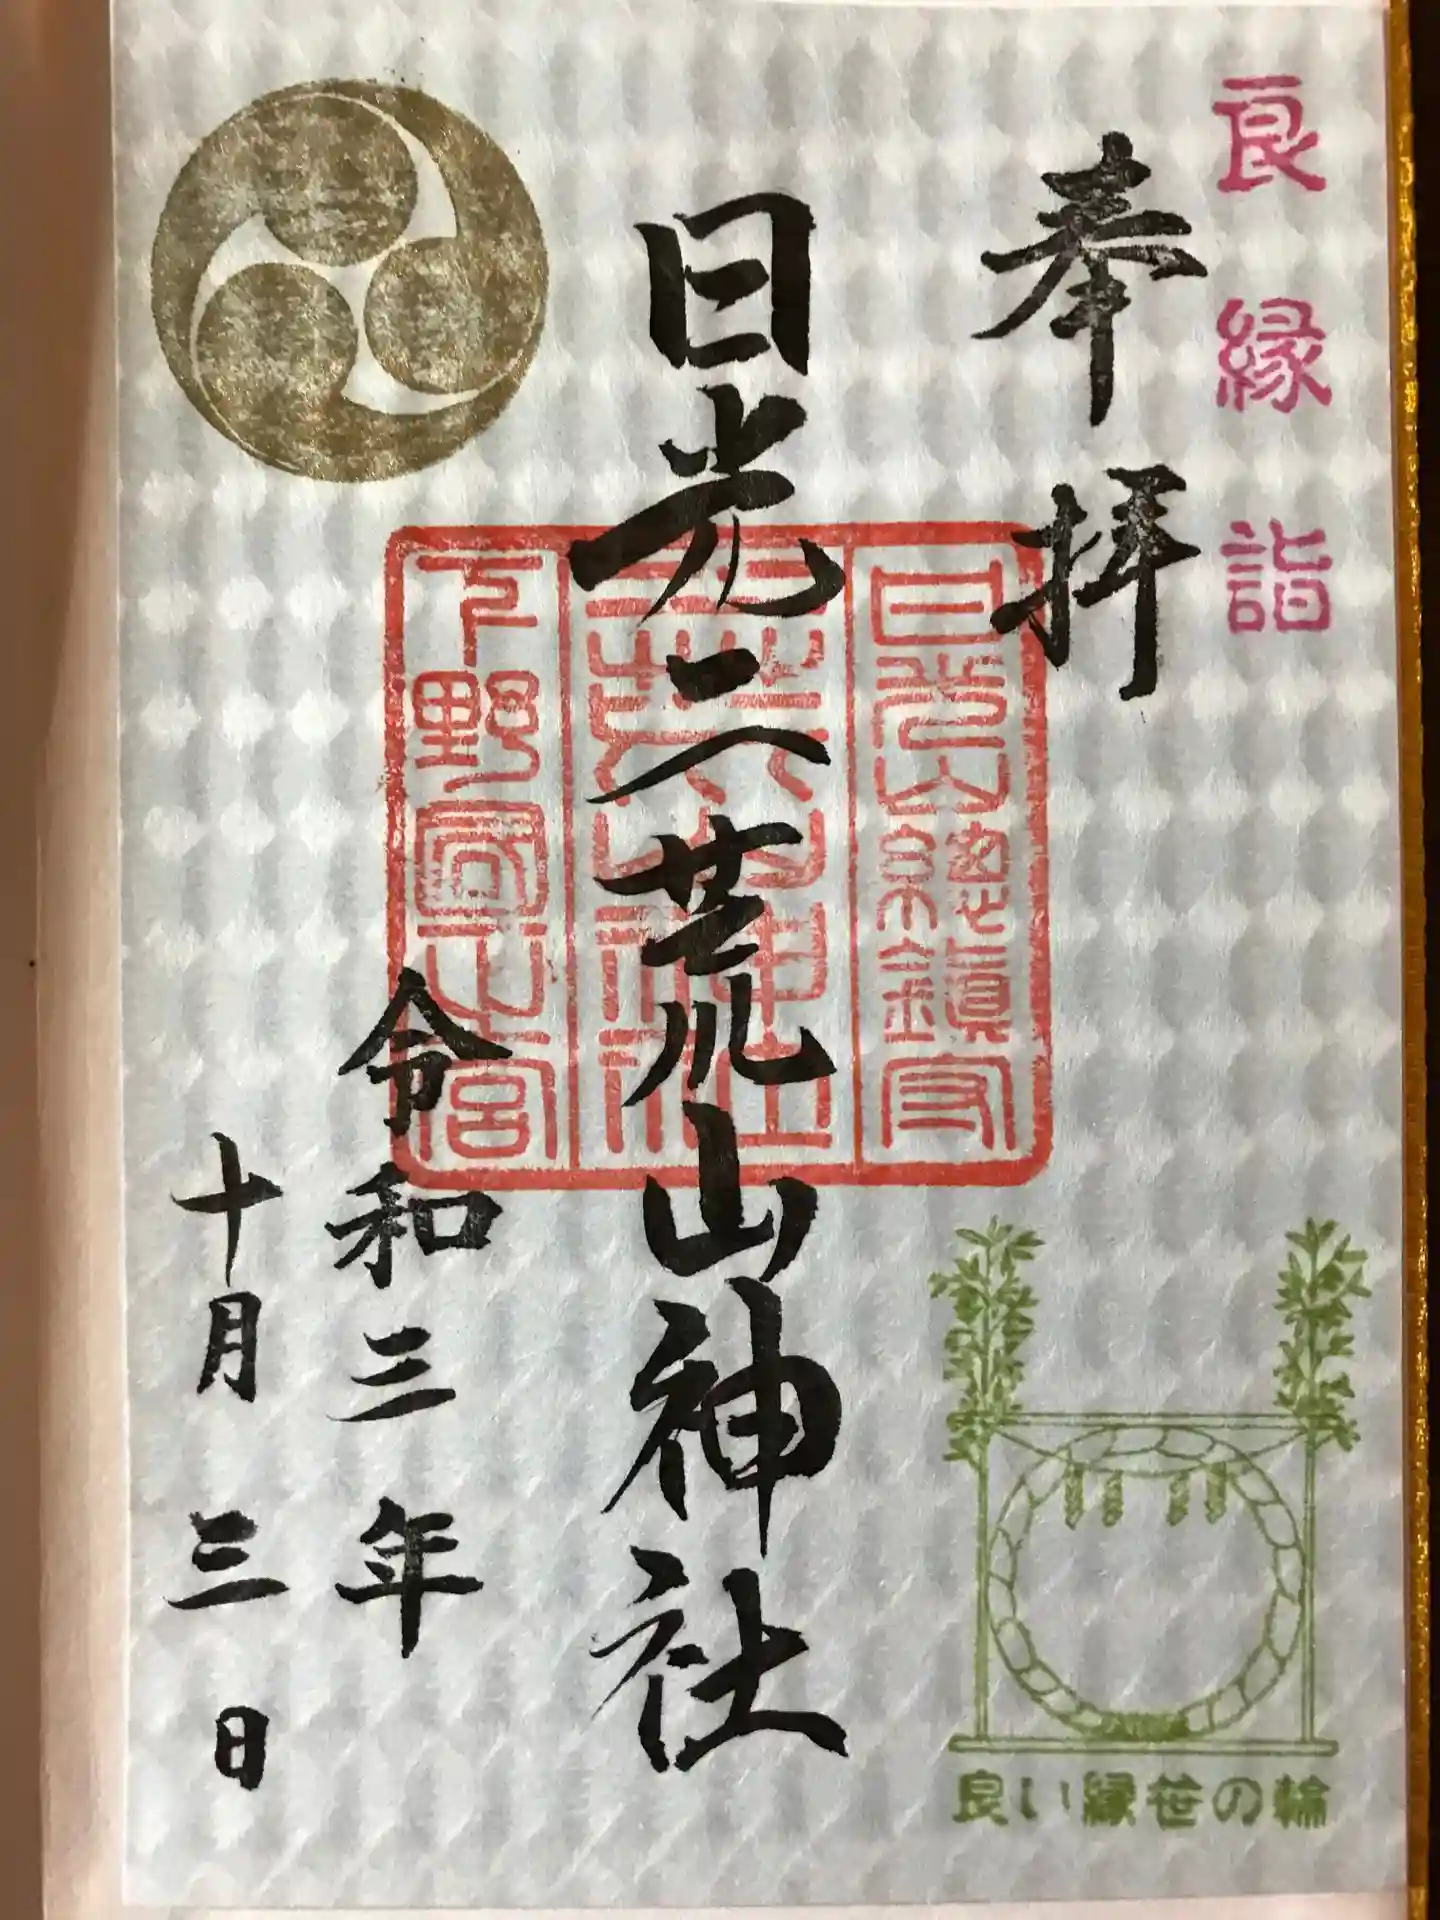 良縁詣
奉拝
日光二荒山神社
日光山総鎮守
二荒山神社
下野國一之宮
令和三年
十月三日
良い縁笹の輪